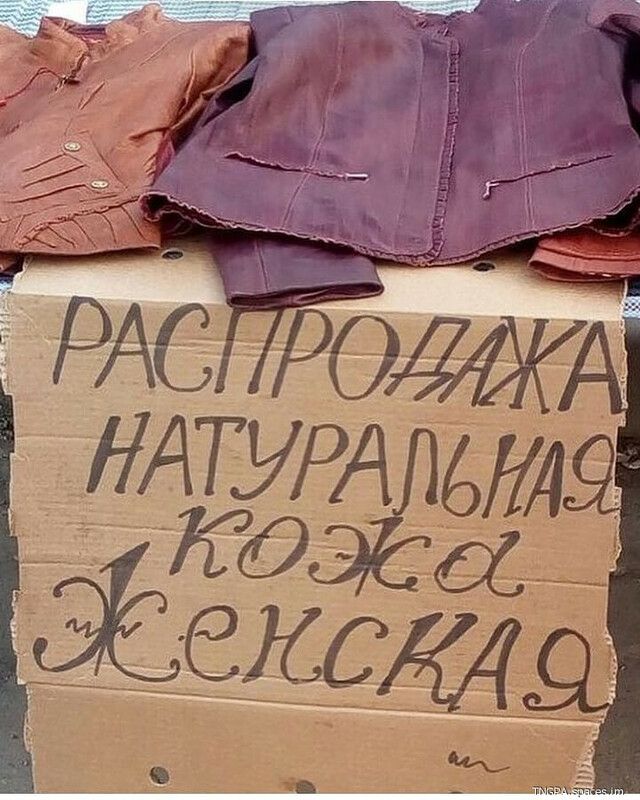 РАСПРОДАЖА
НАТУРАЛЬНАЯ
кожа
Женская
TNGPA.spaces.im